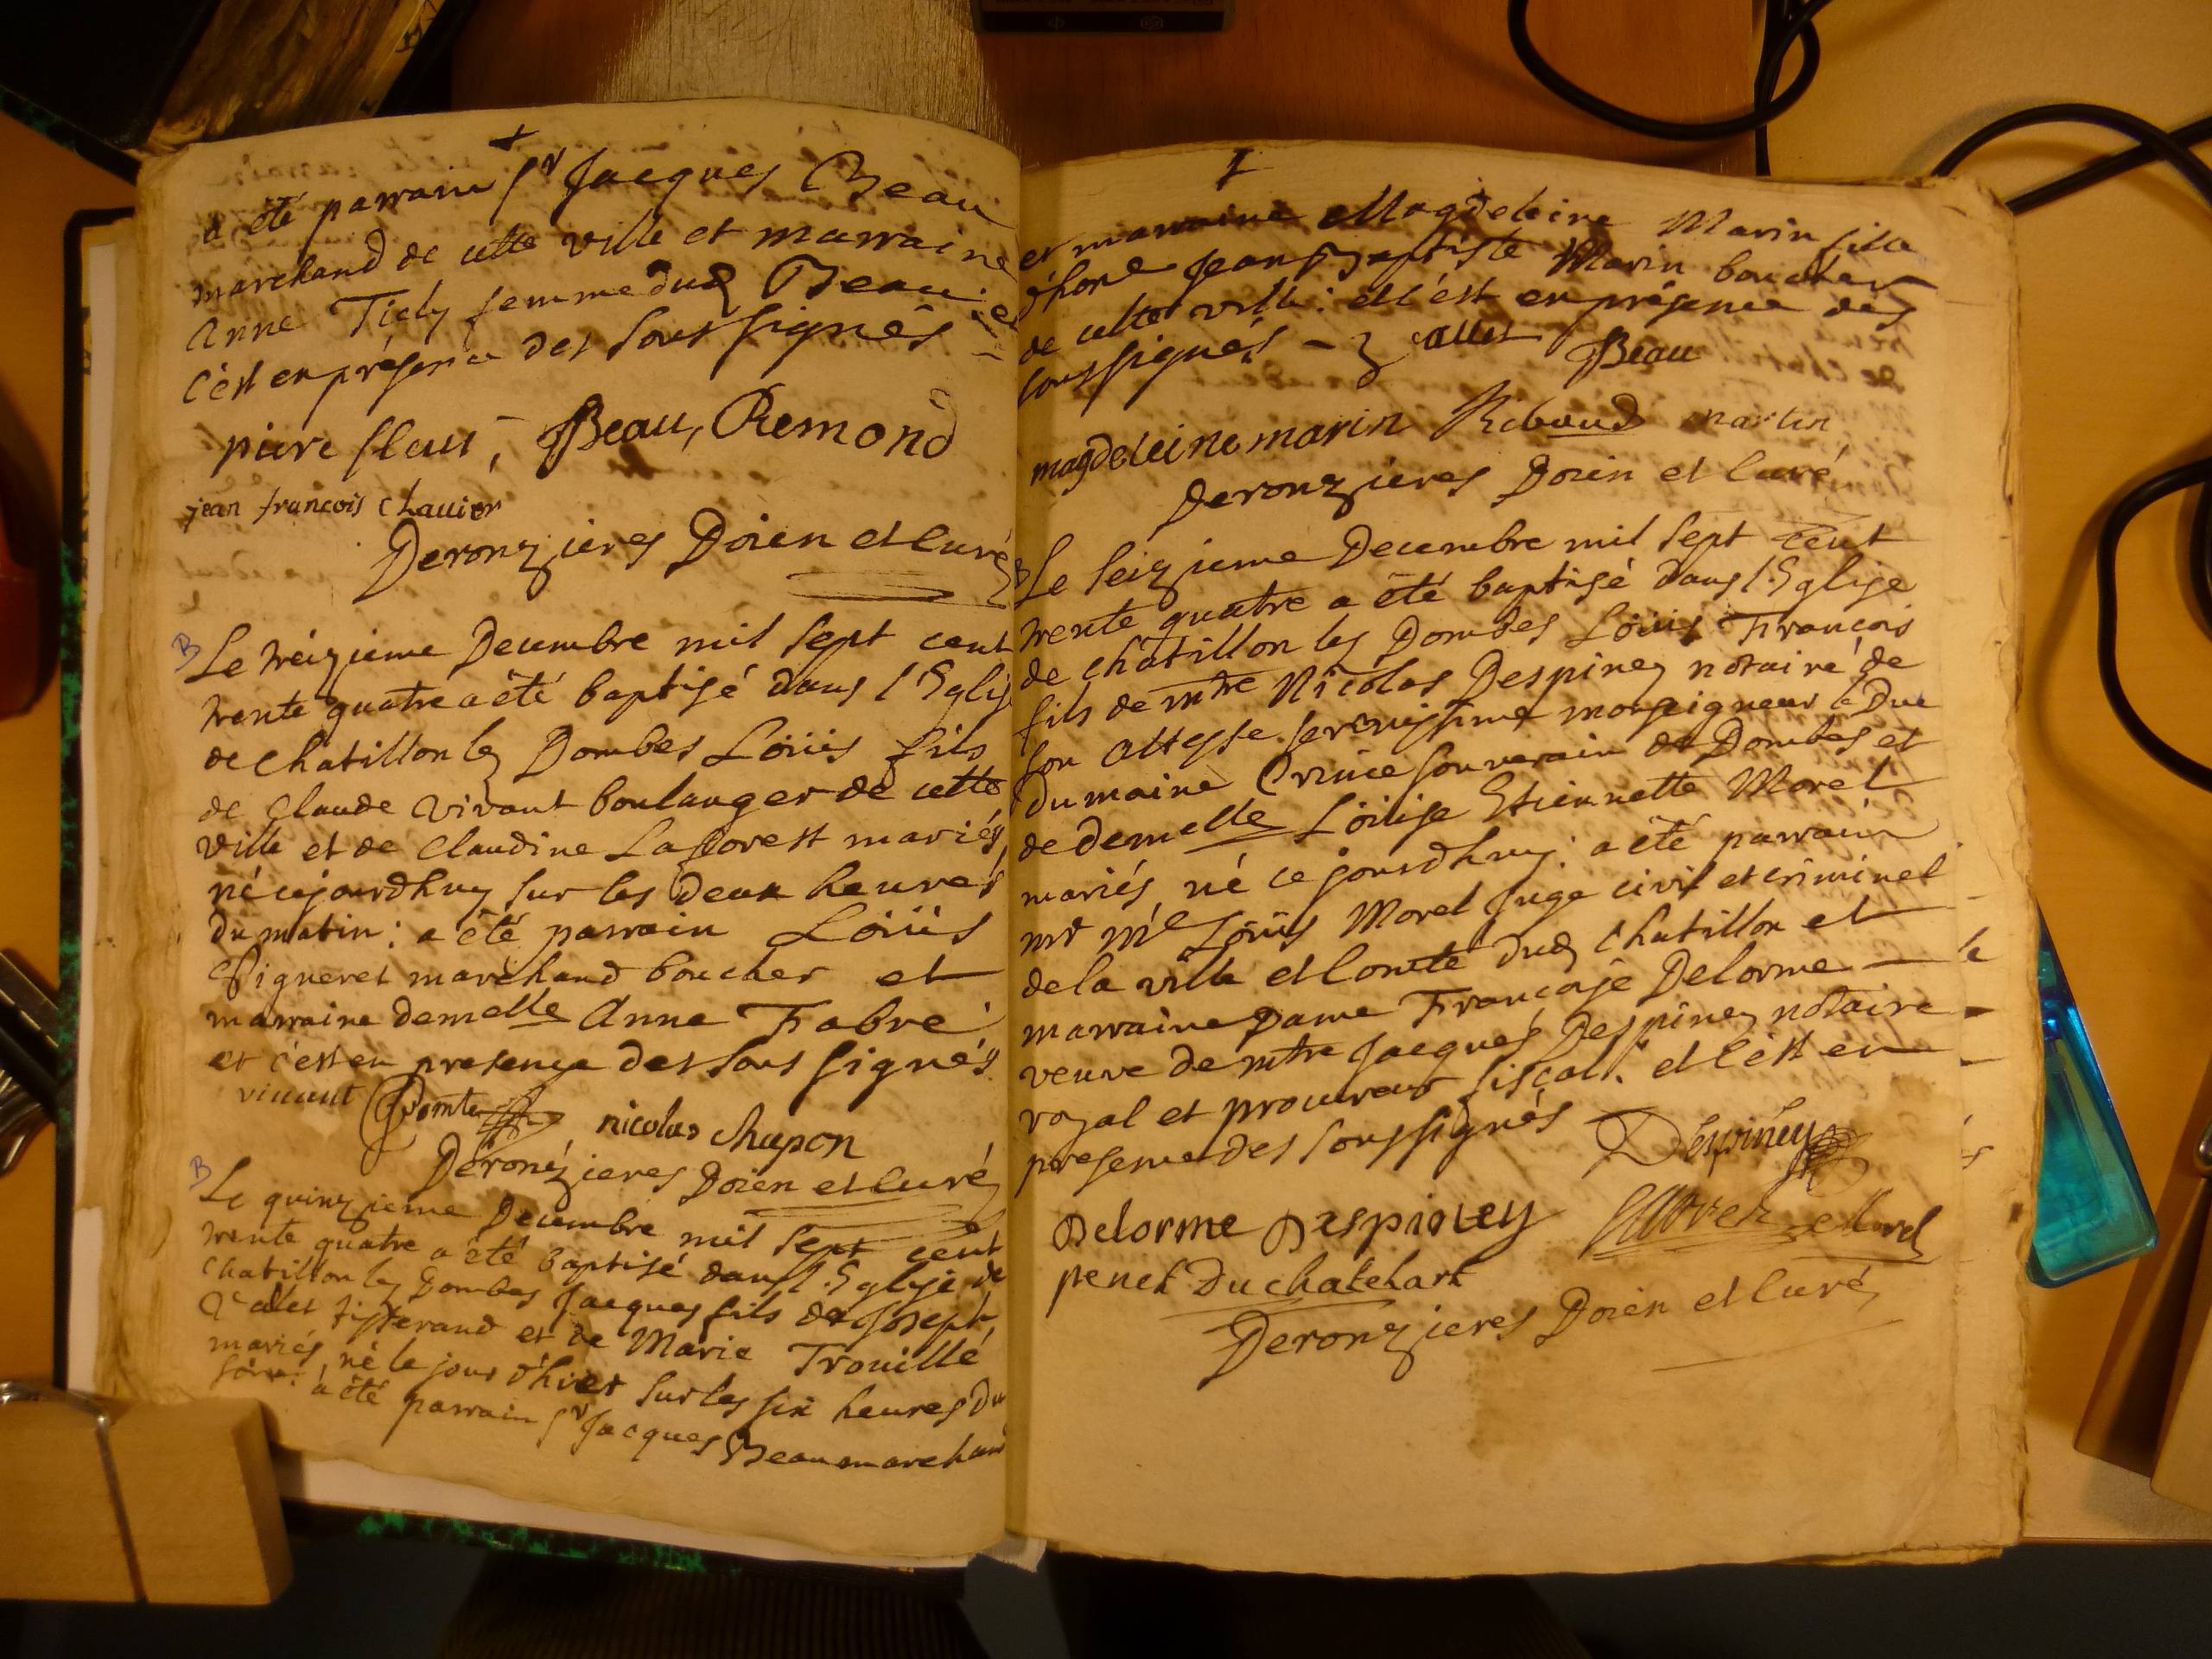 a été parrain Sr Jacques Beau
marchand de cette ville et marraine
Anne Ticly femme dud Beau: et
c'est en présence des soussignés
piere fleur, Beau, Remond
jean francois chavier
Deronzieres Doien et Curé
B Le treizieme Decembre mil sept cent
trente quatre a été baptisé dans l'Eglise
de Chatillon les Dombes Loüis fils
de Claude Vivant boulanger de cette
ville et de Claudine Laforest mariés,
né cejourdhuy sur les deux heures
du matin: a été parrain Loüis
Pigneret marchand boucher et
marraine demelle Anne Fabre
et c'est en presence des soussignés
vivant Comte nicolas chapon
Deronzieres Doien et Curé
B Le quinzieme Decembre mil sept cent
trente quatre a été baptisé dans l'Eglise de
Chatillon les Dombes Jacques fils de Joseph
Valet tisserand et de Marie Trouillé
mariés, né le jour d'hier sur les six heures du
soir: a été parrain Sr Jacques Beau marchand
et marraine Magdeleine Marin fille
d'hone Jean Baptiste Marin boucher
de cette ville: et c'est en présence des
soussignés - vallet Beau
magdeleine marin Ribaud martin
Deronzieres Doien et Curé
B Le seizieme Decembre mil sept cent
trente quatre a été baptisé dans l'Eglise
de Chatillon les Dombes Loüis François
fils de mtre Nicolas Despiney notaire de
son Altesse serenissime monseigneur le Duc
du maine Prince souverain de Dombes et
de demelle Loüise Etiennette Morel
mariés, né ce jourdhuy: a été parrain
mr me Loüis Morel Juge civil et criminel
de la ville et Comté dud Chatillon et
marraine Dame Françoise Delorme
veuve de mtre Jacques Despiney notaire
royal et procureur fiscal: et c'est en
presence des soussignés Despiney
Delorme Despiney Morel Morel
penet Duchatelart
Deronzieres Doien et Curé